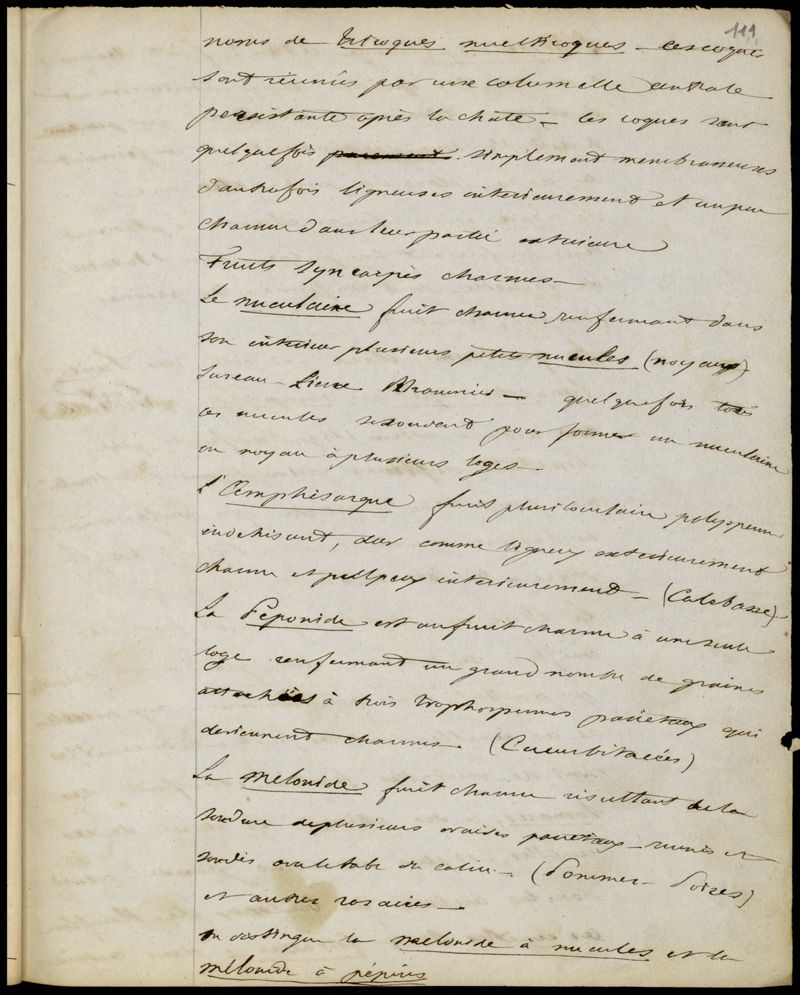 111
noms de tricoques, multicoques – ces coques
sont réunies par une columelle centrale
persistante après la chute – les coques sont
quelquefois simplement membraneuses
d'autrefois ligneuses intérieurement et un peu
charnue dans leur partie extérieure
Fruits syncarpés charnus –
Le nuculaine fruit charnu, renfermant dans
son intérieur plusieurs petits nucules (noyaux)
Sureau – Lierre – quelquefois
ces nucules se soudent pour former un nuculaine
un noyau à plusieurs loges –
L'Amphisarque fruit pluriloculaire polysperme
indéhiscent, dur comme ligneux extérieurement
charnu et pulpeux intérieurement – (Calebasse)
La Péponide est un fruit charnu à une seule
loge renfermant un grand nombre de graines
attachées à trois trophospermes pariétaux qui
deviennent charnus – (Cucurbitacées)
La Mélonide fruit charnu résultant de la
soudure de plusieurs ovaires pariétaux – réunis et
soudés avec le tube du calice – (Pommes – Poires)
et autres rosacées –
on distingue la mélonide à nucules et la
mélonide à pépins